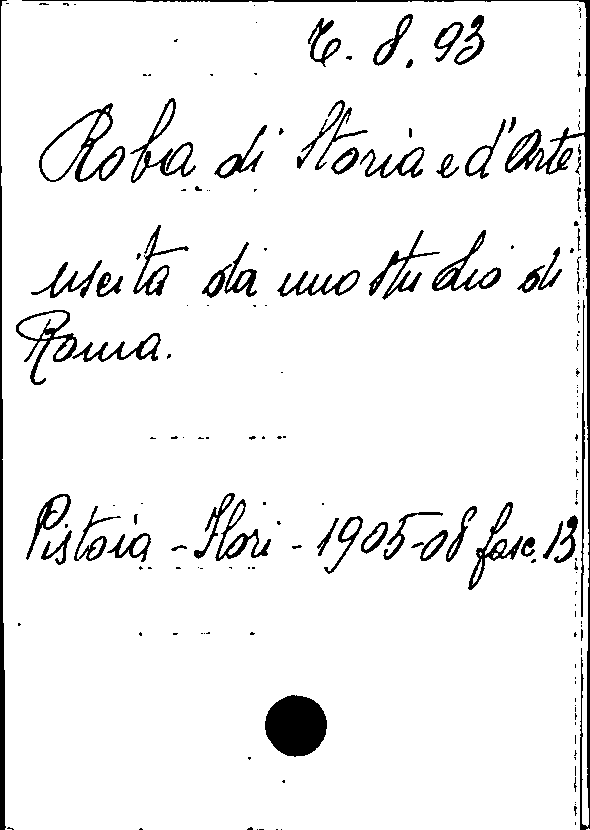 6. 8. 93
Roba di Storia e d'Arte
uscita da uno studio di
Roma.
Pistoia - Flori - 1905-08 fasc. 13